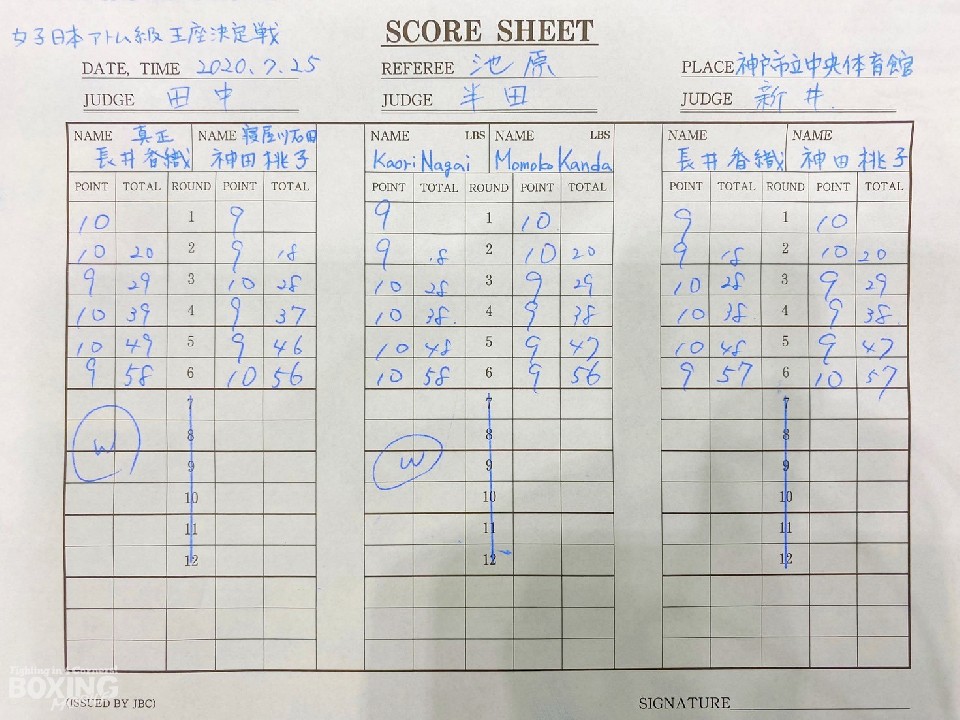 女子日本アトム級王座決定戦
SCORE SHEET
DATE, TIME 2020.7.25
REFEREE 池原
PLACE 神戸市立中央体育館
JUDGE 田中
JUDGE 半田
JUDGE 新井
NAME 真正 NAME 寝屋川石田 NAME LBS NAME LBS NAME NAME
長井香織 神田桃子 Kaori Nagai Momoko Kanda 長井香織 神田桃子
POINT TOTAL ROUND POINT TOTAL POINT TOTAL ROUND POINT TOTAL POINT TOTAL ROUND POINT TOTAL
10 1 9 9 1 10 9 1 10
10 20 2 9 18 9 18 2 10 20 9 18 2 10 20
9 29 3 10 28 10 28 3 9 29 10 28 3 9 29
10 39 4 9 37 10 38 4 9 38 10 38 4 9 38
10 49 5 9 46 10 48 5 9 47 10 48 5 9 47
9 58 6 10 56 10 58 6 9 56 9 57 6 10 57
7 7 7
W 8 W 8 8
9 9 9
10 10 10
11 11 11
12 12 12
Fighting in a Corner!
BOXING
(ISSUED BY JBC)
SIGNATURE